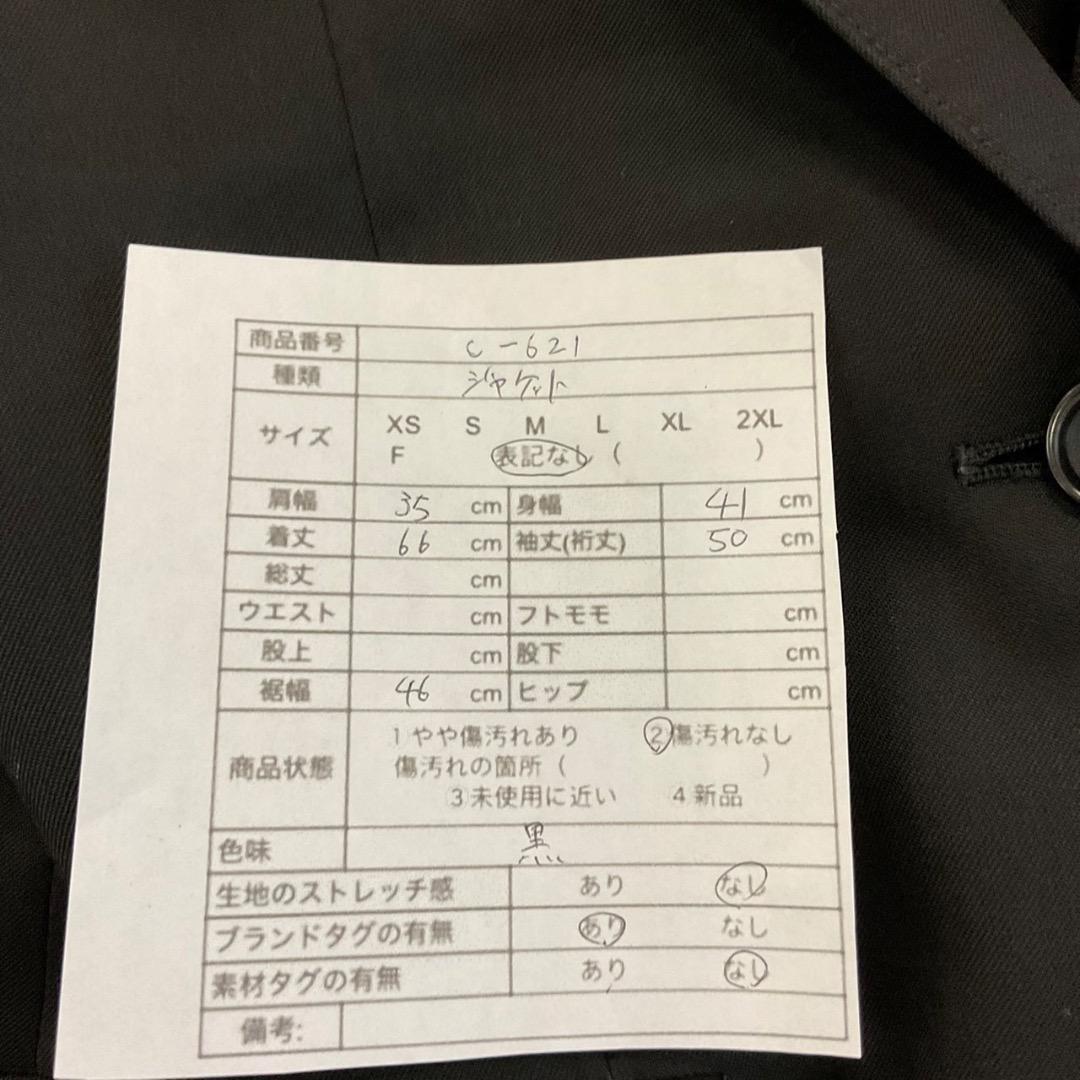 商品番号 C-621
種類 ジャケット
サイズ XS S M L XL 2XL
F 表記なし ( )
肩幅 35 cm 身幅 41 cm
着丈 66 cm 袖丈(裄丈) 50 cm
総丈 cm
ウエスト cm フトモモ cm
股上 cm 股下 cm
裾幅 46 cm ヒップ cm
1 やや傷汚れあり ②傷汚れなし
商品状態 傷汚れの箇所 ( )
3 未使用に近い 4 新品
色味 黒
生地のストレッチ感 あり なし
ブランドタグの有無 あり なし
素材タグの有無 あり なし
備考: